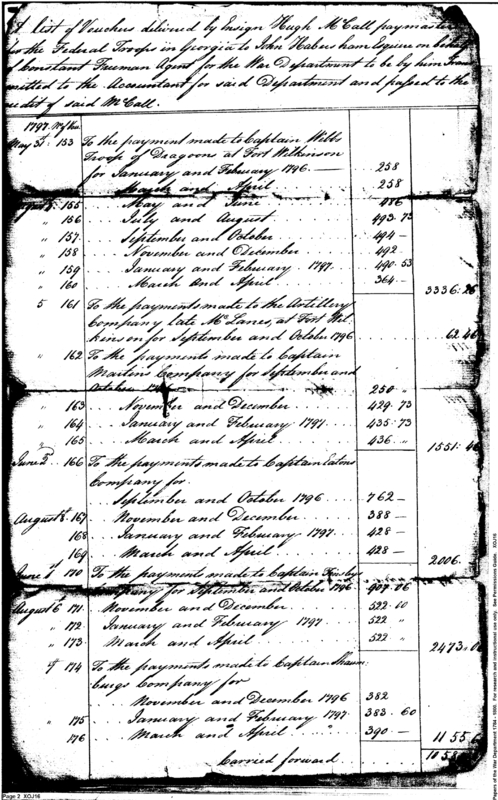 A list of Vouchers delivered by Ensign Hugh McCall paymaster
for the Federal Troops in Georgia to John Habersham Esquire on behalf
of Constant Freeman Agent for the War Department to be by him trans
mitted to the Accountant for said Department and passed to the
credit of said McCall.
1797.
May 31 153 To the payment made to Captain Webbs
Troop of Dragoons at Fort Wilkinson
for January and February 1796. 258
March and April 258
155 May and June 486
" 156 July and August 493.73
" 157 September and October 494 —
" 158 November and December 492
" 159 January and February 1797 490.53
" 160 March and April 364 — 3336.26
5 161 To the payments made to the Artillery
Company late McLanes, at Fort Wil-
kinson for September and October 1796 62.46
" 162 To the payments made to Captain
Martins Company for September and
October 1796 250
" 163 November and December 429.73
" 164 January and February 1797 435.73
" 165 March and April 436 " 1551.46
June 166 To the payments made to Captain Eatons
Company for
September and October 1796 762 —
August 8. 167 November and December 388 —
168 January and February 1797 428 —
169 March and April 428 — 2006.
June 170 To the payments made to Captain
Company for September and October 1796 907.06
August 6 171 November and December 522.00
" 172 January and February 1797 522 "
" 173 March and April 522 " 2473.0
174 To the payments made to Captain Shaum
burgs Company for
November and December 1796 382
" 175 January and February 1797 383.60
" 176 March and April " 390 — 1155
Carried forward 1058
Page 2 XOJ16
Papers of the War Department 1784 - 1800. For research and instructional use only. See Permissions Guide. XOJ16